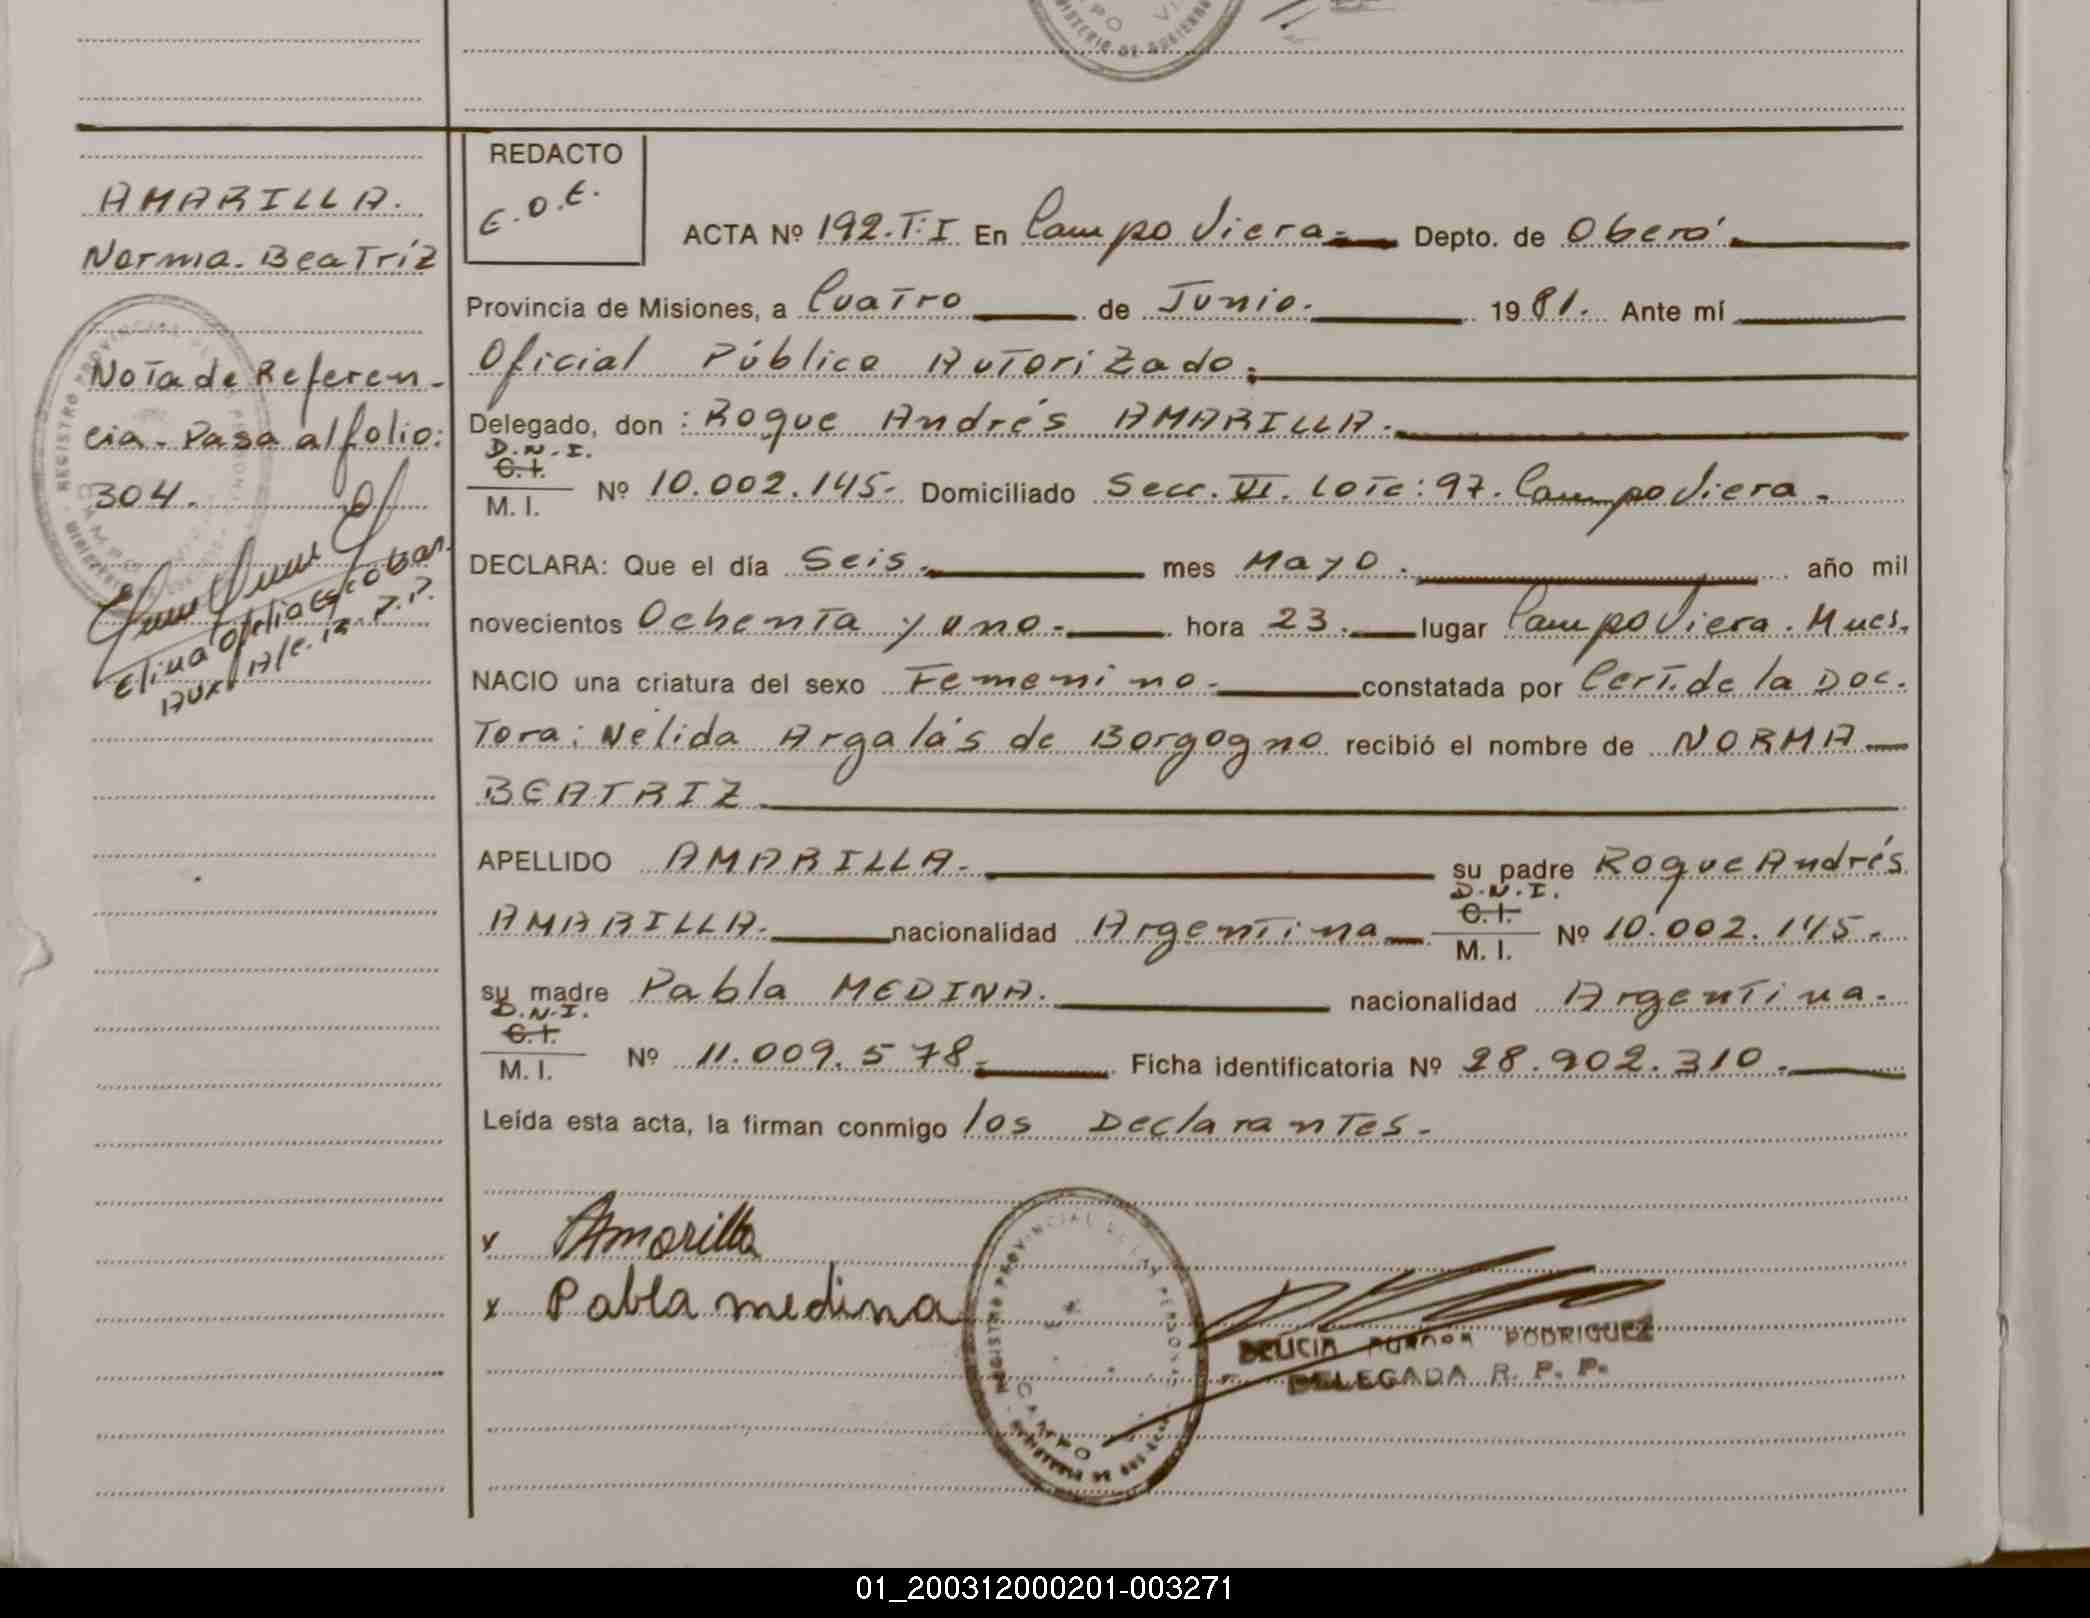 AMARILLA.
Norma. Beatríz
Nota de Referen-
cia. Pasa al folio:
304.
Elina Ofelia Escobar
Aux. A/c. R. P. P.
REDACTO
E.O.E.
ACTA Nº 192.T:I En Campo Viera.- Depto. de Oberá.
Provincia de Misiones, a Cuatro de Junio. 1981. Ante mí
Oficial Público Autorizado.
Delegado, don : Roque Andrés AMARILLA.
D.N.I.
C.I.
M. I. Nº 10.002.145.- Domiciliado Secc. VI. Lote: 97. Campo Viera.
DECLARA: Que el día Seis. mes Mayo. año mil
novecientos Ochenta y uno. hora 23. lugar Campo Viera. Mnes.
NACIO una criatura del sexo Femenino. constatada por Cert. de la Doc.
Tora: Nélida Argalás de Borgogno recibió el nombre de NORMA
BEATRIZ
APELLIDO AMARILLA. su padre Roque Andrés
AMARILLA. nacionalidad Argentina
D.N.I.
C.I.
M. I. Nº 10.002.145.
su madre Pabla MEDINA. nacionalidad Argentina.
D.N.I.
C.I.
M. I. Nº 11.009.578. Ficha identificatoria Nº 28.902.310.
Leída esta acta, la firman conmigo los Declarantes.
x Amarilla
x Pabla medina
REGISTRO PROVINCIAL DE LAS PERSONAS
CAMPO
RODRIGUEZ
DELEGADA R. P. P.
01_200312000201-003271